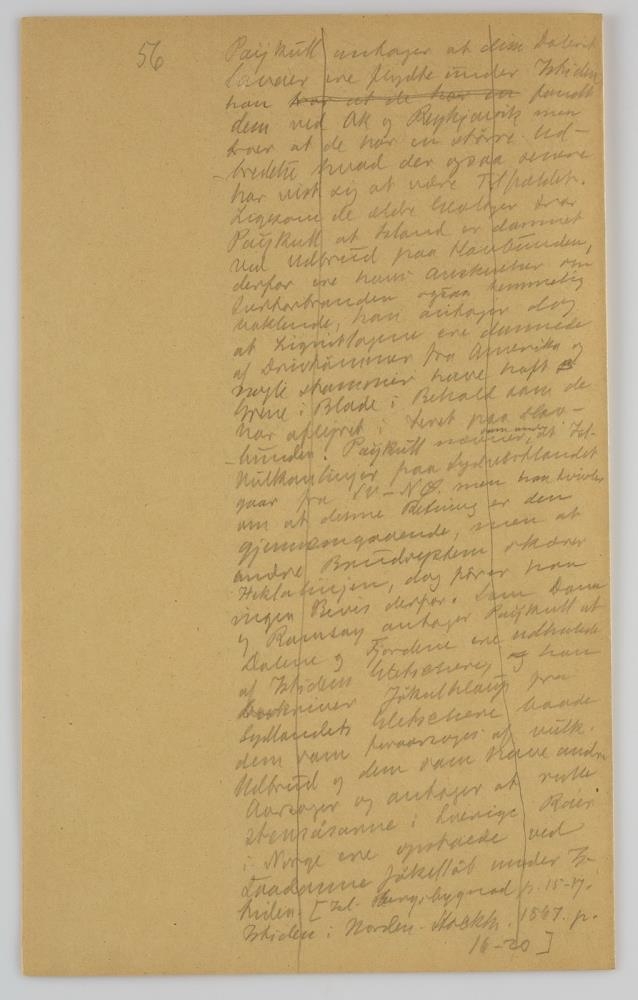 56
Paijkull antager at disse Dolerit
Lavaer ere flydte under Istiden
han tror at de har en fandt
dem ved Ok og Reykjavik men
troer at de har en större Ud-
bredelse hvad der ogsaa senere
har vist sig at være Tilfældet.
Ligesom de ældre Geologer tror
Paijkull at Island er dannet
ved Udbrud paa Havbunden,
derfor ere hans Anskuelser om
Surtarbranden ogsaa temmelig
vaklende, han antager dog
at Lignitlagene ere dannede
af Drivtömmer fra Amerika og
nogle stammer have haft
Grene i Blade i Behold som de
har afleiret i Leret paa Hav-
bunden. Paijkull nævner, at
Vulkanlinjer paa Sydvestlandet
gaar fra SV-NØ. men han tvivler
om at denne Retning er den
gjennemgaaende, men at
andre Brudsystem skærer
Heklalinjen, dog förer han
ingen Bevis derfor. Som Dana
og Ramsay antager Paijkull at
Dalene og Fjordene ere udhulede
af Istidens Gletschere, og han
beskriver Jökulhlaup fra
Sydlandets Gletschere baade
dem som foraarsages af vulk.
Udbrud og dem som have andre
Aarsager og antager at rulle
stensåsarne i Sverige Raer
i Norge ere opstaaede ved
saadanne Jökelløb under Is-
tiden. [Isl. Bergsbygnad p. 15-17.
Istiden i Norden. Stockh. 1867. p.
16-20]